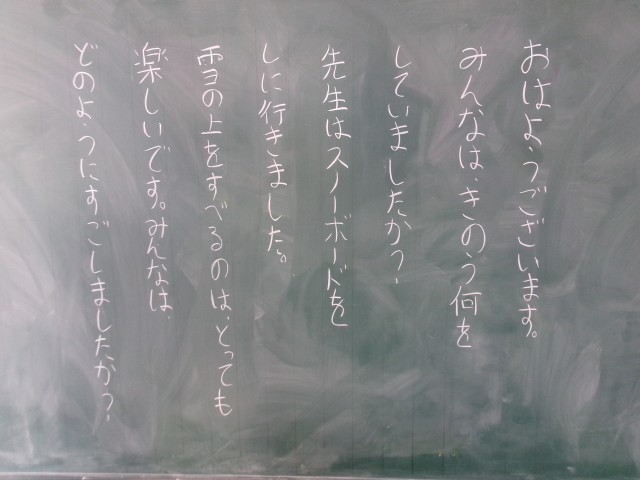 おはようございます。
みんなは、きのう何を
していましたか？
先生はスノーボードを
しに行きました。
雪の上をすべるのは、とっても
楽しいです。みんなは、
どのようにすごしましたか？